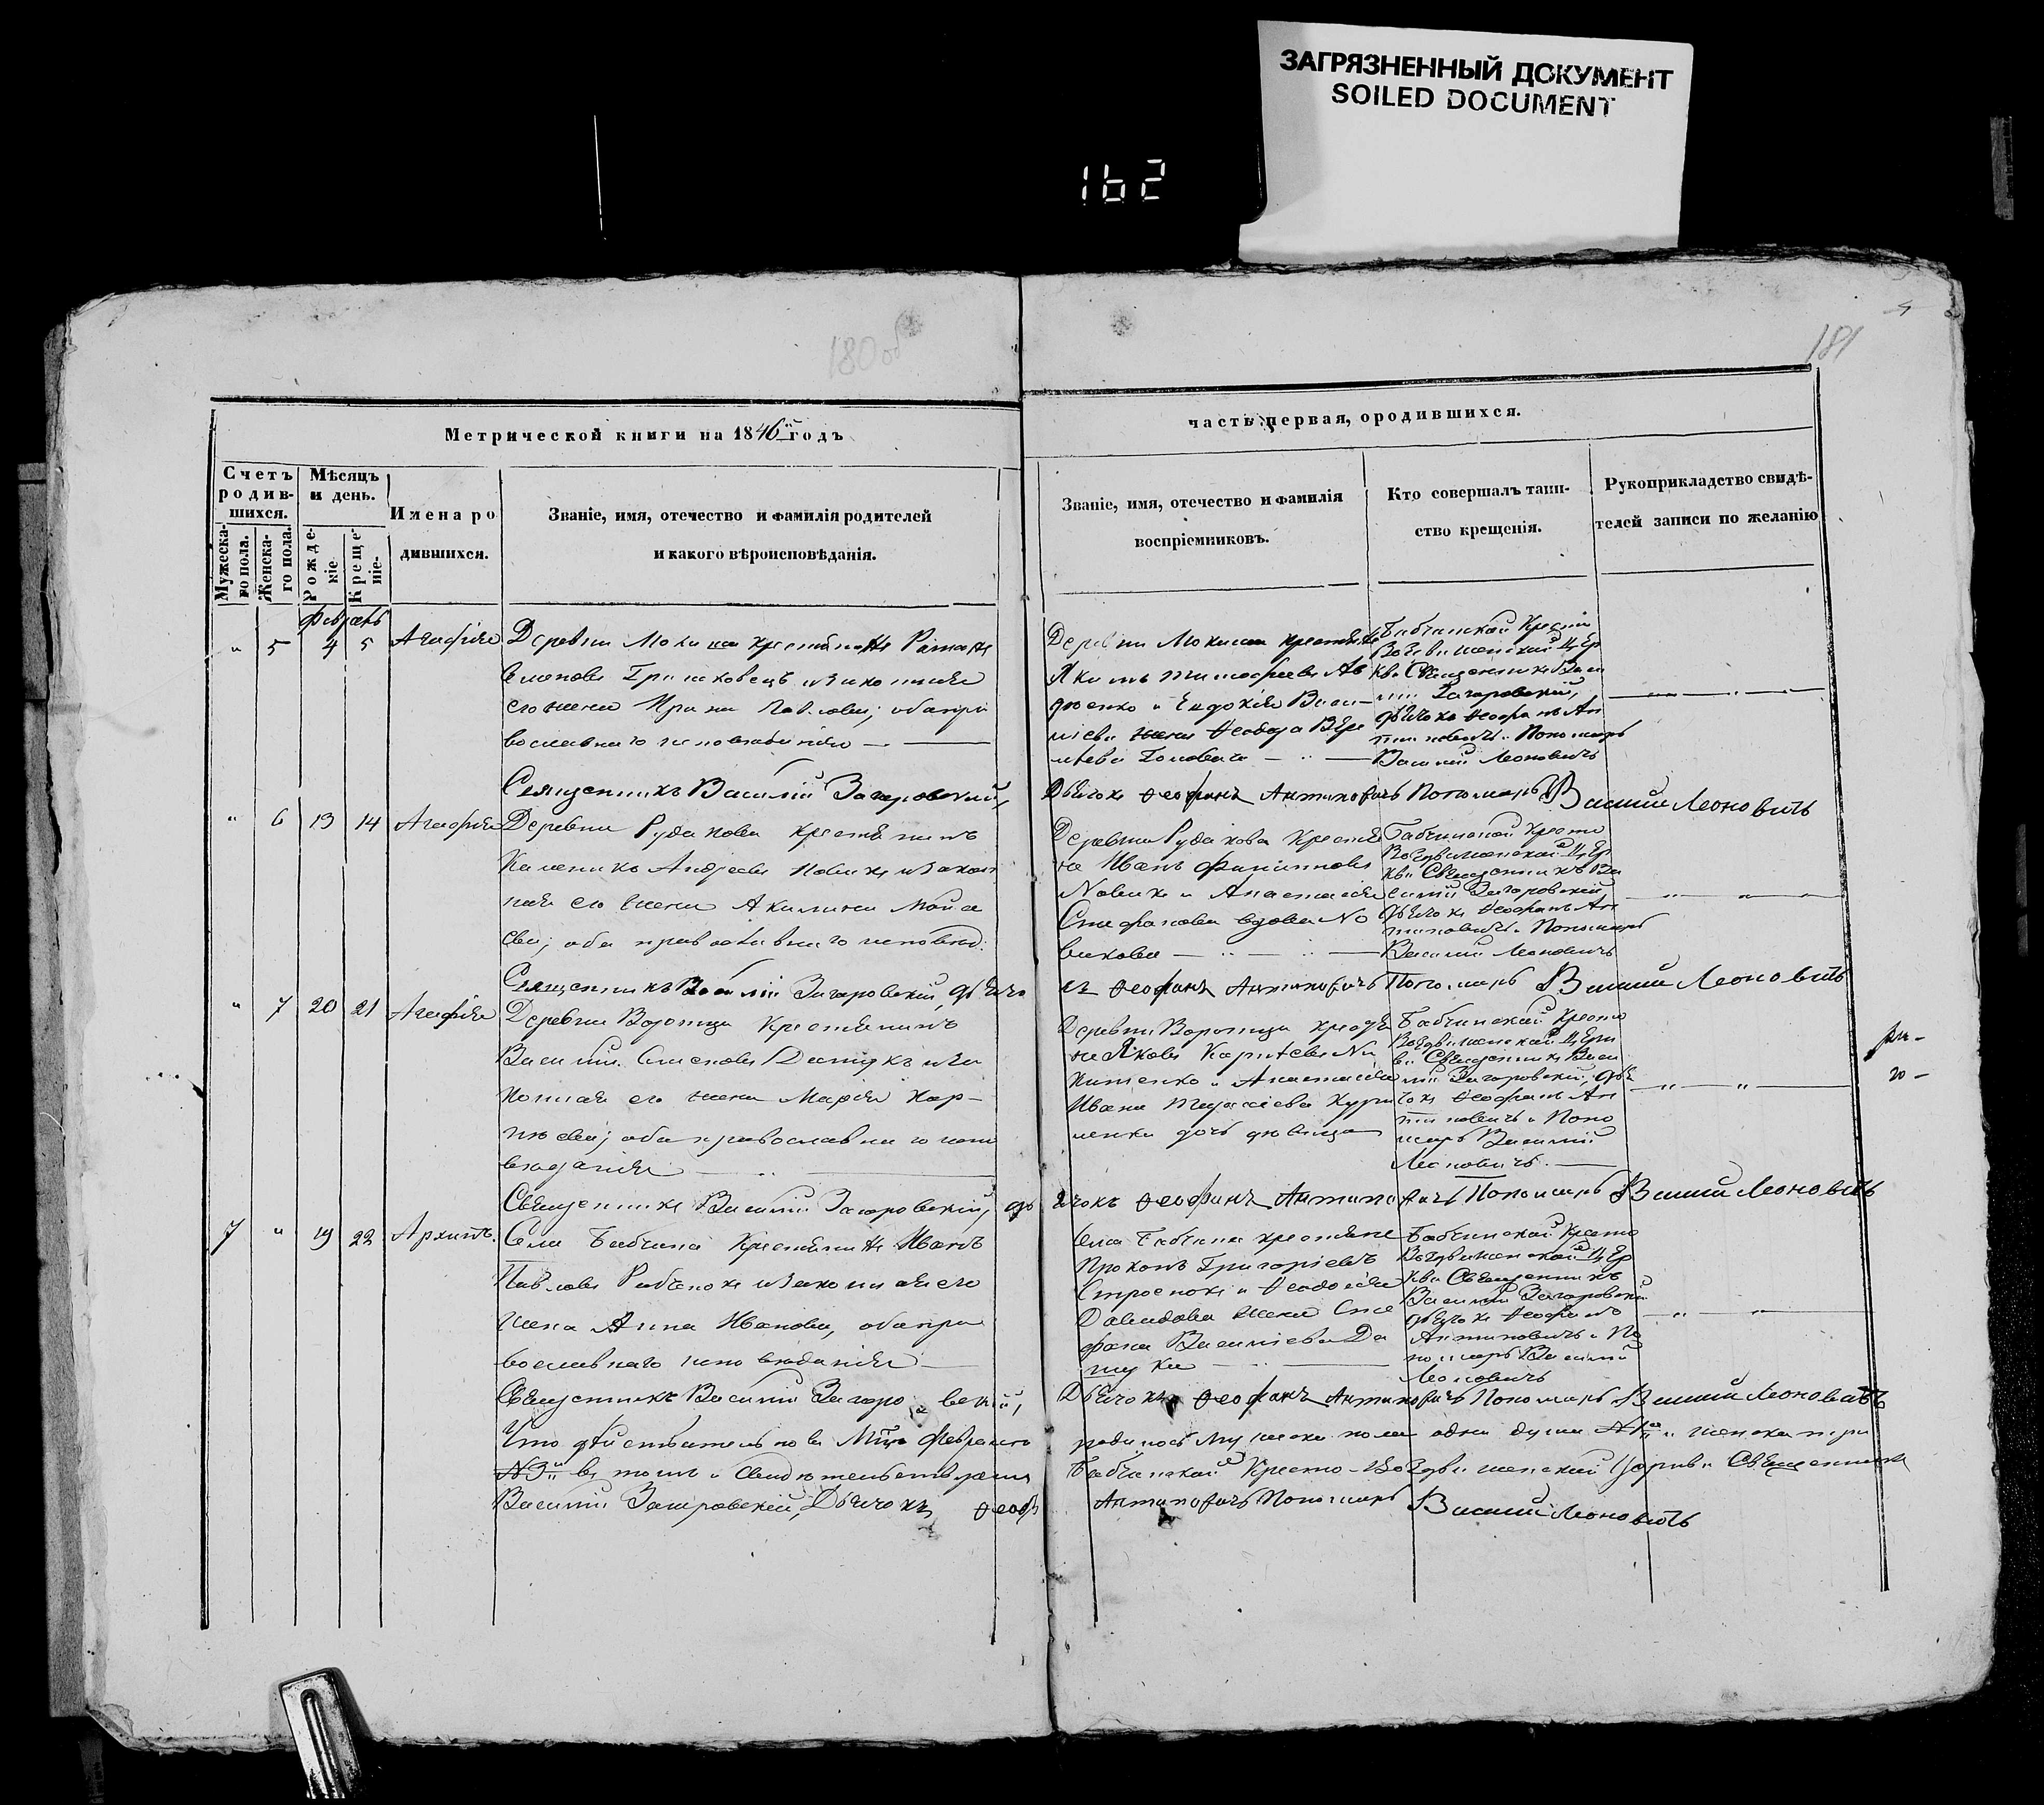 ЗАГРЯЗНЕННЫЙ ДОКУМЕНТ
SOILED DOCUMENT
162
180 об
181
Метрической книги на 1846й годъ
часть первая, ородившихся.
Счетъ
родив-
шихся.
Мужеска-
го пола.
Женска-
го пола.
Мѣсяцъ
и день.
Рожде-
ніе
Креще-
ніе.
Имена ро
дившихся.
Званіе, имя, отечество и фамилія родителей
и какого вѣроисповѣданія.
Званіе, имя, отечество и фамилія
воспріемниковъ.
Кто совершалъ таин-
ство крещенія.
Рукоприкладство свидѣ-
телей записи по желанію
февраль
" 5 4 5 Агафія
Деревни крестьянинъ Романъ
Семеновъ и законная
его жена Ирина Павлова; оба пра
вославнаго исповѣданія
Деревни крестьян
Якимъ Тимофеевъ Ав
и Евдокія Васи
ліева жена Ѳеодора
Бабчинской Кресто
Воздвиженской Цер
кви Священникъ Васи
лій Загоровскій,
дьячокъ Ѳеофанъ Ан
типовичъ и Пономарь
Василій Леоновичъ
Священникъ Василій Загоровскій,
Дьячокъ Ѳеофанъ Антиповичъ Пономарь Василій Леоновичъ
" 6 13 14 Агафія
Деревни Рудакова крестьянинъ
Андреевъ Новикъ и закон
ная его жена Акилина Мойсе
ева; оба православнаго исповѣд:
Деревни Рудакова Крестья
не Иванъ Филиповъ
Новикъ и Анастасія
Стефанова вдова Но
викова
Бабчинской Кресто
Воздвиженской Цер
кви Священникъ Ва
силій Загоровскій
дьячокъ Ѳеофанъ Ан
типовичъ и Пономарь
Василій Леоновичъ
Священникъ Василій Загоровскій, дьячо
къ Ѳеофанъ Антиповичъ Пономарь Василій Леоновичъ
" 7 20 21 Агафія
Деревни Воротца Крестьянинъ
Василій Семеновъ и за
конная его жена Марія Кар-
пѣева; оба православнаго испо
вѣданія
Деревни Воротца крестья
не Яковъ Карпѣевъ Ни
и Анастасія
Ивана
дочь дѣвица
Бабчинской Кресто
Воздвиженской Церк
ви Священникъ Васи
лій Загоровскій, дья
чокъ Ѳеофанъ Ан
типовичъ и Поно
марь Василій
Леоновичъ.
Священникъ Василій Загоровскій, дь
ячокъ Ѳеофанъ Антиповичъ Пономарь Василій Леоновичъ
7 " 19 22 Архипъ.
Села Бабчина Крестьянинъ Иванъ
Павловъ и законная его
жена Анна Иванова, оба пра
вославнаго исповѣданія
Села Бабчина крестьяне
Прокопъ Григоріевъ
и Ѳеодосія
Давидова жена Сте
фана Василіева Да
Бабчинской Кресто
Воздвиженской Цер
кви Священникъ
Василій Загоровскій
дьячокъ Ѳеофанъ
Антиповичъ и По
номарь Василій
Леоновичъ
Священникъ Василій Загоровскій,
Дьячокъ Ѳеофанъ Антиповичъ Пономарь Василій Леоновичъ
Что дѣйствительно въ Мцѣ февралѣ
родилось мужеска пола одна душа №1й и женска три
№3й въ томъ и свидѣтельствуемъ
Бабчинской Кресто-Воздвиженской Церкви Священникъ
Василій Загоровскій, Дьячокъ Ѳеоф
Антиповичъ Пономарь Василій Леоновичъ